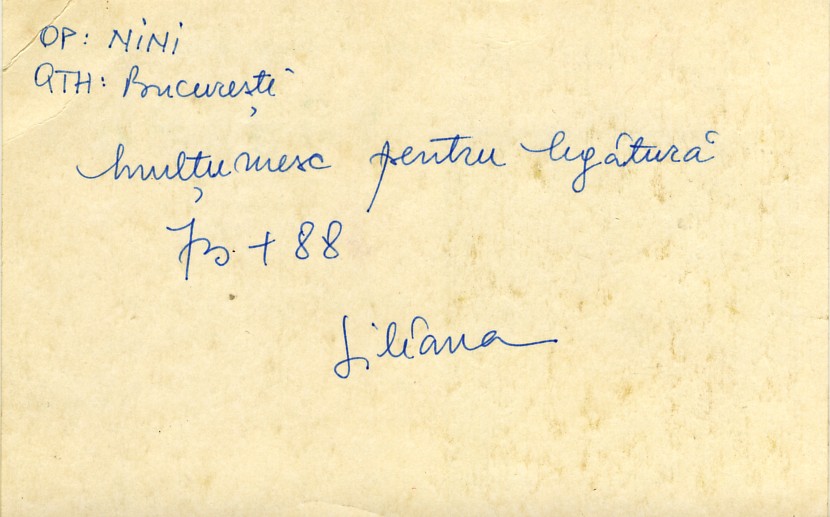 OP: NiNi
QTH: București
Mulțumesc pentru legătură
73 + 88
Liliana